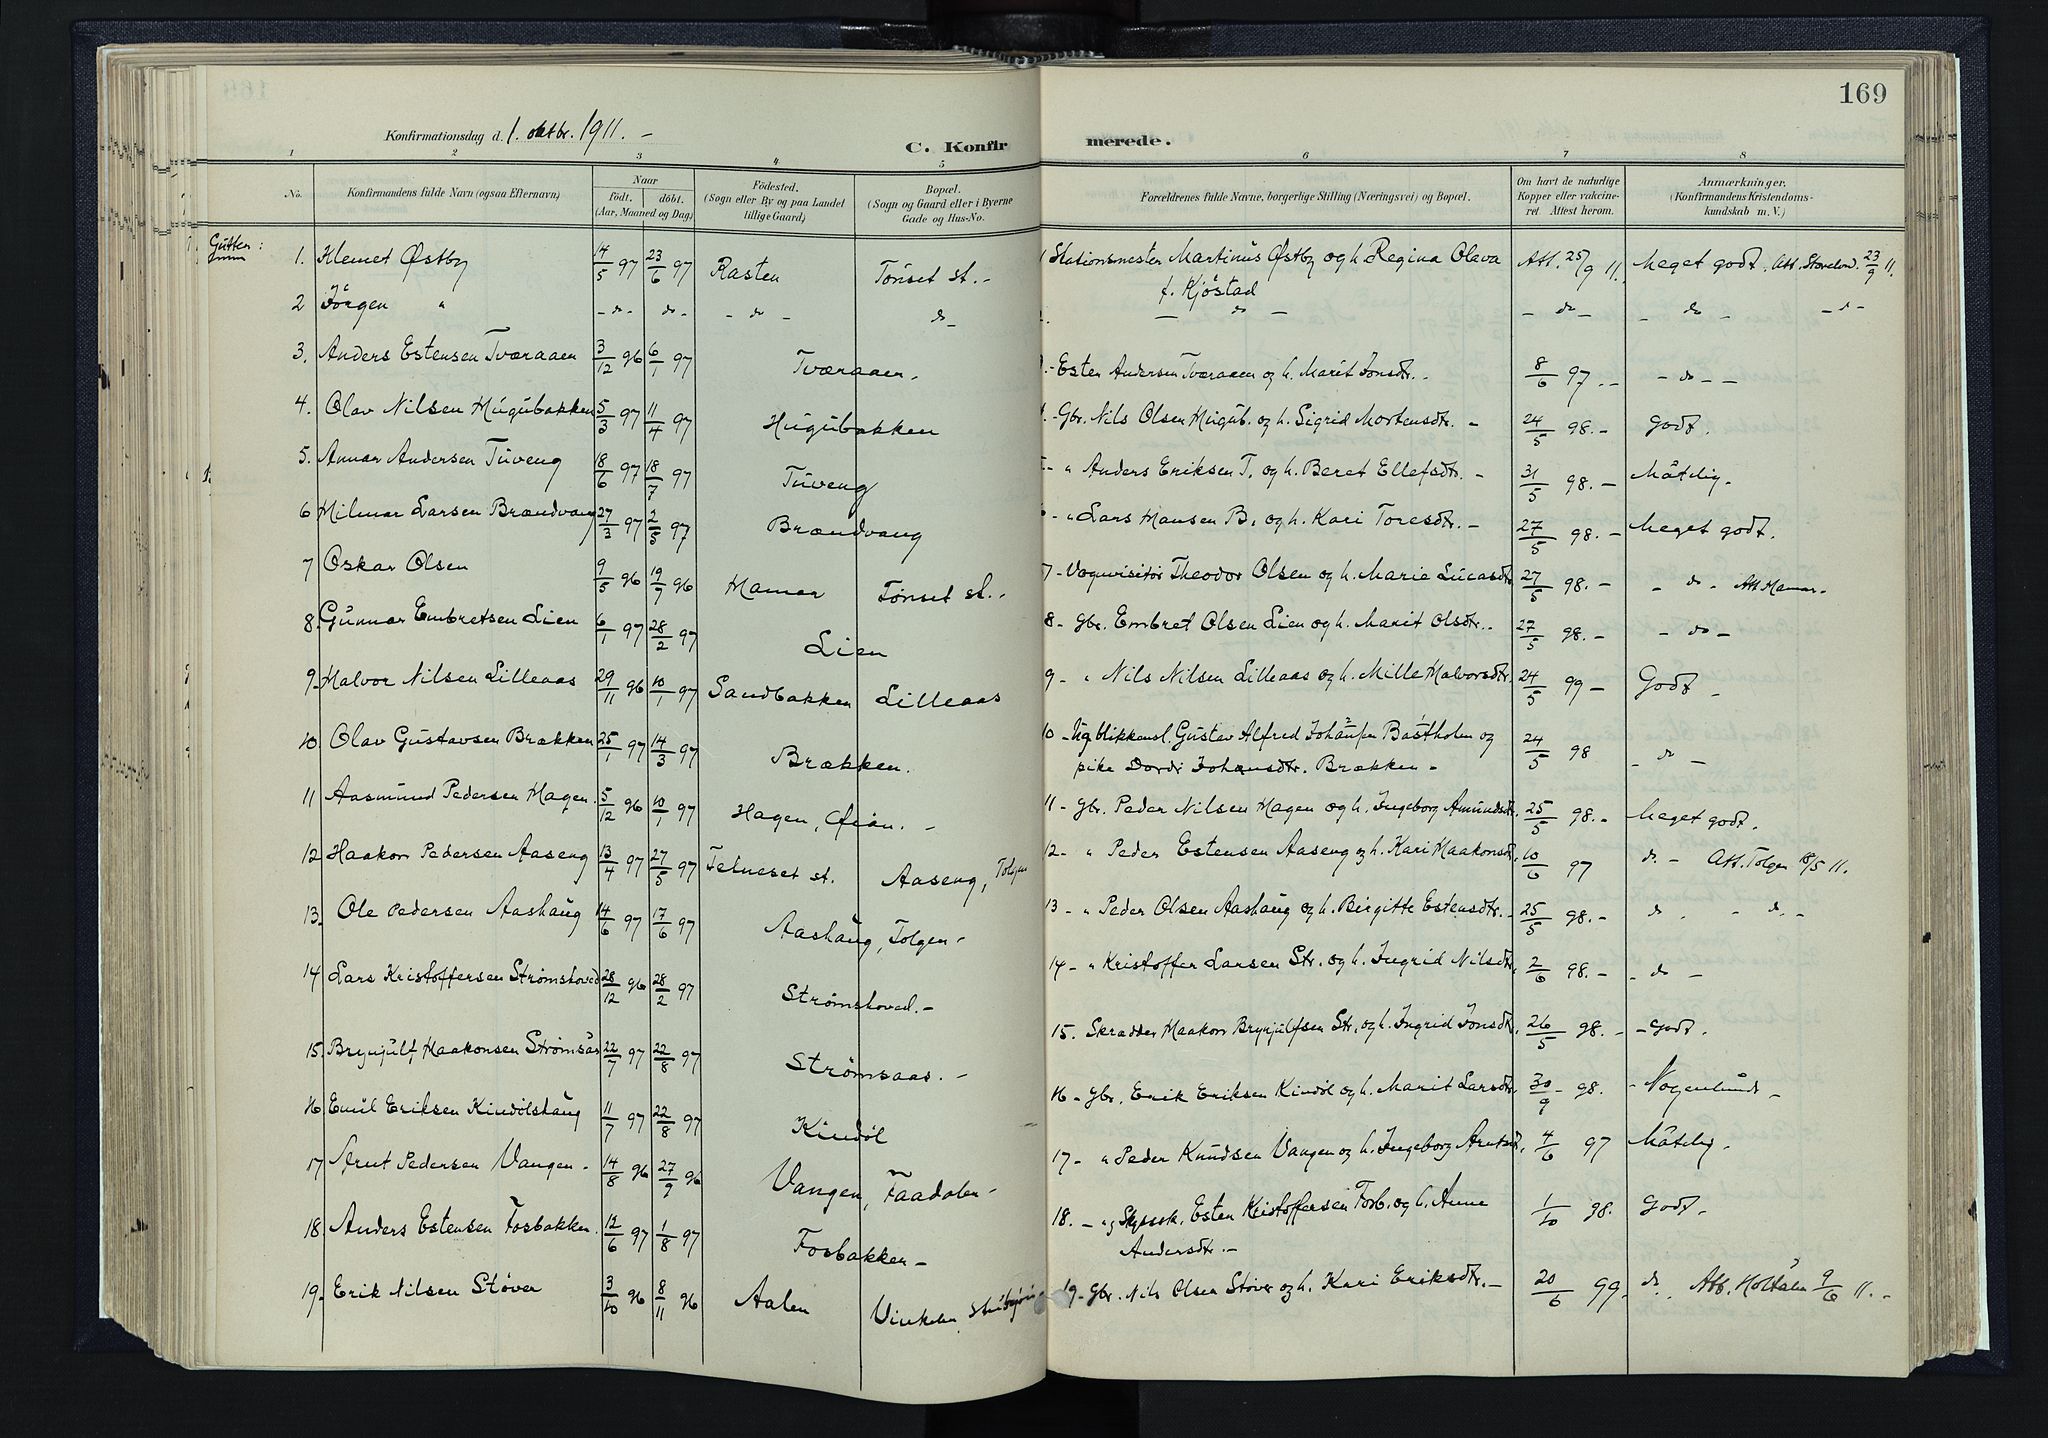 169
Konfirmationsdag d. 1. oktbr. 1911. -
C. Konfirmerede.
1 2 3 4 5 6 7 8
No. Konfirmandens fulde Navn (ogsaa Efternavn) Naar födt. döbt. (Aar, Maaned og Dag) Födested. (Sogn eller By og paa Landet tillige Gaard) Bopæl. (Sogn og Gaard eller i Byerne Gade og Hus-No. Forældrenes fulde Navne, borgerlige Stilling (Næringsvei) og Bopæl. Om havt de naturlige Kopper eller vakcineret Attest herom. Anmærkninger. (Konfirmandens Kristendomskundskab m. V.)
Gutter:
1. Klemet Østby 14/5 97 23/6 97 Rasten Tönset st. - 1 Stationsmester Martinus Østby og h. Regina Olava Att. 25/9 11. Meget godt. Att. 23/9 11.
f. Kjöstad
2 Jörgen " - do - do - - do - do - - do - - do - - do - - d -
3. Anders Estensen Tværaaen 3/12 96 6/1 97 Tværaaen. - Esten Andersen Tværaaen og h. Marit Jonsdtr. - 8/6 97. - - do - -
4. Olav Nilsen Hugubakken 5/3 97 11/4 97 Hugubakken - Gbr. Nils Olsen Hugub. og h. Sigrid Mortensdtr. - 24/5 98. - Godt.
5. Annar Andersen Tuveng 18/6 97 18/7 97 Tuveng - " Anders Eriksen T. og h. Beret Ellefsdtr. - 31/5 98. - Måtelig.
6 Hilmar Larsen Brændvang 27/3 97 2/5 97 Brændvang - " Lars Hansen B. og h. Kari Toresdtr. - 27/5 98. - Meget godt.
7 Oskar Olsen 9/5 96 19/7 96 Hamar Tönset st. - 7 - Vognvisitör Theodor Olsen og h. Marie Lucasdtr 27/5 98. - - do - Att Hamar. -
8. Gunnar Embretsen Lien 6/1 97 28/2 97 Lien 8 - Gbr. Embret Olsen Lien og h. Marit Olsdtr. - 27/5 98. - - do -
9. Halvor Nilsen Lilleaas 29/11 96 10/1 97 Sandbakken Lilleaas 9 - " Nils Nilsen Lilleaas og h. Mille Halvorsdtr. 24/5 99 - Godt -
10. Olav Gustavsen Brækken 25/1 97 14/3 97 Brækken. 10 - Ug. blikkensl. Gustav Alfred Bastholm og 24/5 98 - do -
pike Dordi Johansdtr. Brækken -
11 Aasmund Pedersen Hagen. 5/12 96 10/1 97 Hagen, Øian. - 11 - Gbr. Peder Nilsen Hagen og h. Ingeborg Amundsdtr. 25/5 98. - Meget godt.
12 Haakon Pedersen Aaseng 13/4 97 27/5 97 Telneset st. Aaseng, Tolgen 12 - " Peder Estensen Aaseng og h. Kari Haakonsdtr. 10/6 97 do - Att. Tolgen 18/5 11.
13. Ole Pedersen Aashaug 14/6 97 17/6 97 Aashaug, Tolgen - 13 - " Peder Olsen Aashaug og h. Birgitte Estensdtr. - 25/5 98. - do. - d. -
14 Lars Kristoffersen Strømshoved 28/12 96 28/2 97 Strømshoved. - 14 - " Kristoffer Larsen Str. og h. Ingrid Nilsdtr. 2/6 98. - - do -
15. Brynjulf Haakonsen Strømsås 22/7 97 22/8 97 Strømsaas. - 15. Skrædder Haakon Brynjulfsen Str. og h. Ingrid Jonsdtr. 26/5 98. - - Godt.
16 Emil Eriksen Kindölshaug 11/7 97 22/8 97 Kindöl 16 - Gbr. Erik Eriksen Kindöl og h. Marit Larsdtr. 30/9 - 98. - Nogenlunde -
17 Arnt Pedersen Vangen - 14/8 96 27/9 96 Vangen, Faadalen - 17 - " Peder Knudsen Vangen og h. Ingeborg Arntsdt. 4/6 97 Måtelig.
18. Anders Estensen Fosbakken. 12/6 97 1/8 97 Fosbakken - 18. - " og Esten Kristoffersen Fosb. og h. Anne 1/10 98. Godt.
Andersdtr. -
19. Erik Nilsen Stöver 3/10 96 8/11 96 Aalen Vinkelen 19 - Gbr. Nils Olsen Stöver og h. Kari Eriksdtr. - 20/6 99. do. Att. Holtålen 9/6 11. -